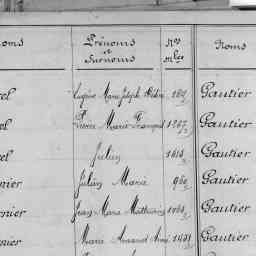 oms Prénoms et Surnoms Nos mles Noms
rel Eugène Marie Joseph Gautier
rel Pierre Marie François 1267 Gautier
rel Julien 1614 Gautier
nier Julien Marie 960 Gautier
rnier Jean Marie Mathurin Gautier
rnier Marie Armand Aimé 1431 Gautier